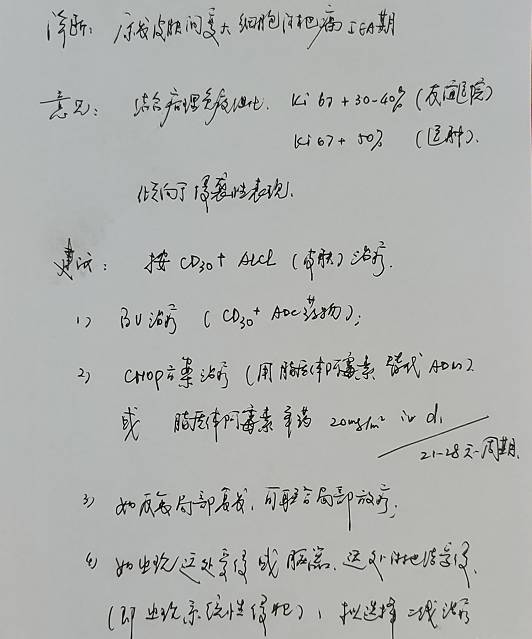 诊断: 原发皮肤间变大细胞淋巴瘤 IEA期
意见: 结合病理免疫组化. Ki 67 + 30-40% (友谊医院)
Ki 67 + 50% (肿).
倾向于侵袭性表现.
建议: 按 CD30+ ALCL (皮肤) 治疗.
1) BV治疗 (CD30+ ADC药物);
2) CHOP方案治疗 (用脂质体阿霉素替代ADM)
或 脂质体阿霉素单药 20mg/m² iv d1
21-28天一周期.
3) 如反复局部复发, 可联合局部放疗;
4) 如出现远处受侵或脏器、远处淋巴结受侵.
(即出现系统性侵犯), 拟选择二线治疗